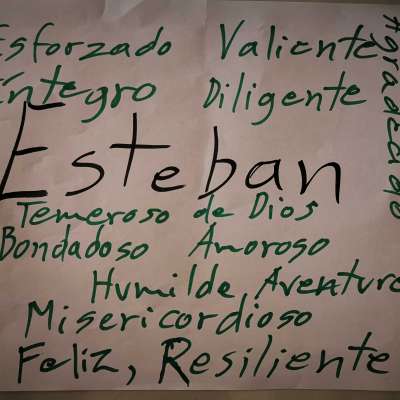 Esforzado Valiente
Integro Diligente
Esteban
Temeroso de Dios
Bondadoso Amoroso
Humilde, Aventure
Misericordioso
Feliz, Resiliente
Agradecido